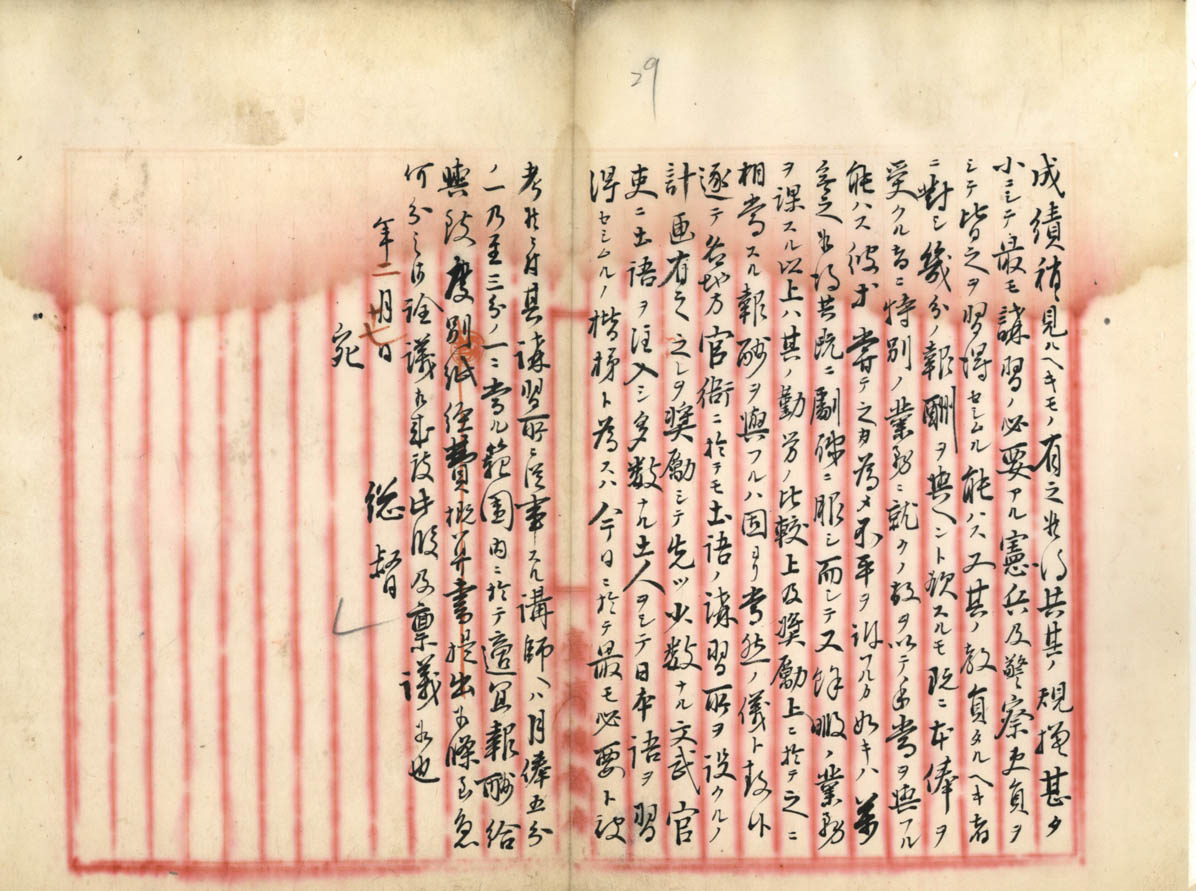 29
成績稍見ルヘキモノ有之候得共其ノ規摸甚タ
小ニシテ最モ講習ノ必要アル憲兵及警察吏員ヲ
シテ皆之ヲ習得セシムル能ハス又其ノ教員タルヘキ者
ニ対シ幾分ノ報酬ヲ與ヘント欲スルモ既ニ本俸ヲ
受クル者ニ特別ノ業務ニ就クノ故ヲ以テ手当ヲ與フル
能ハス彼等之カ為メ不平ヲ訴フルカ如キハ萬
無之候得共既ニ劇職ニ服シ而シテ又餘暇ノ業務
ヲ課スル以上ハ其ノ勤労ノ比較上及奨励上ニ於テ之ニ
相當スル報酬ヲ與フルハ固ヨリ當然ノ儀ト
逐テ各地方官衙ニ於テモ土語ノ講習所ヲ設クルノ
計画有之之レヲ奨励シテ先ツ少数ナル文武官
吏ニ土語ヲ注入シ多数ナル土人ヲシテ日本語ヲ習
得セシムルノ楷梯ト為スハ今日ニ於テ最モ必要ト被
考候ニ付其講習所ニ従事スル講師ヘハ月俸五分
ノ一乃至三分ノ一ニ當ル範圍内ニ於テ適宜報酬給
與致度別紙經費概算書提出候條至急
何分之御詮議相成度此段及禀議候也
年二月十七日
総督
宛